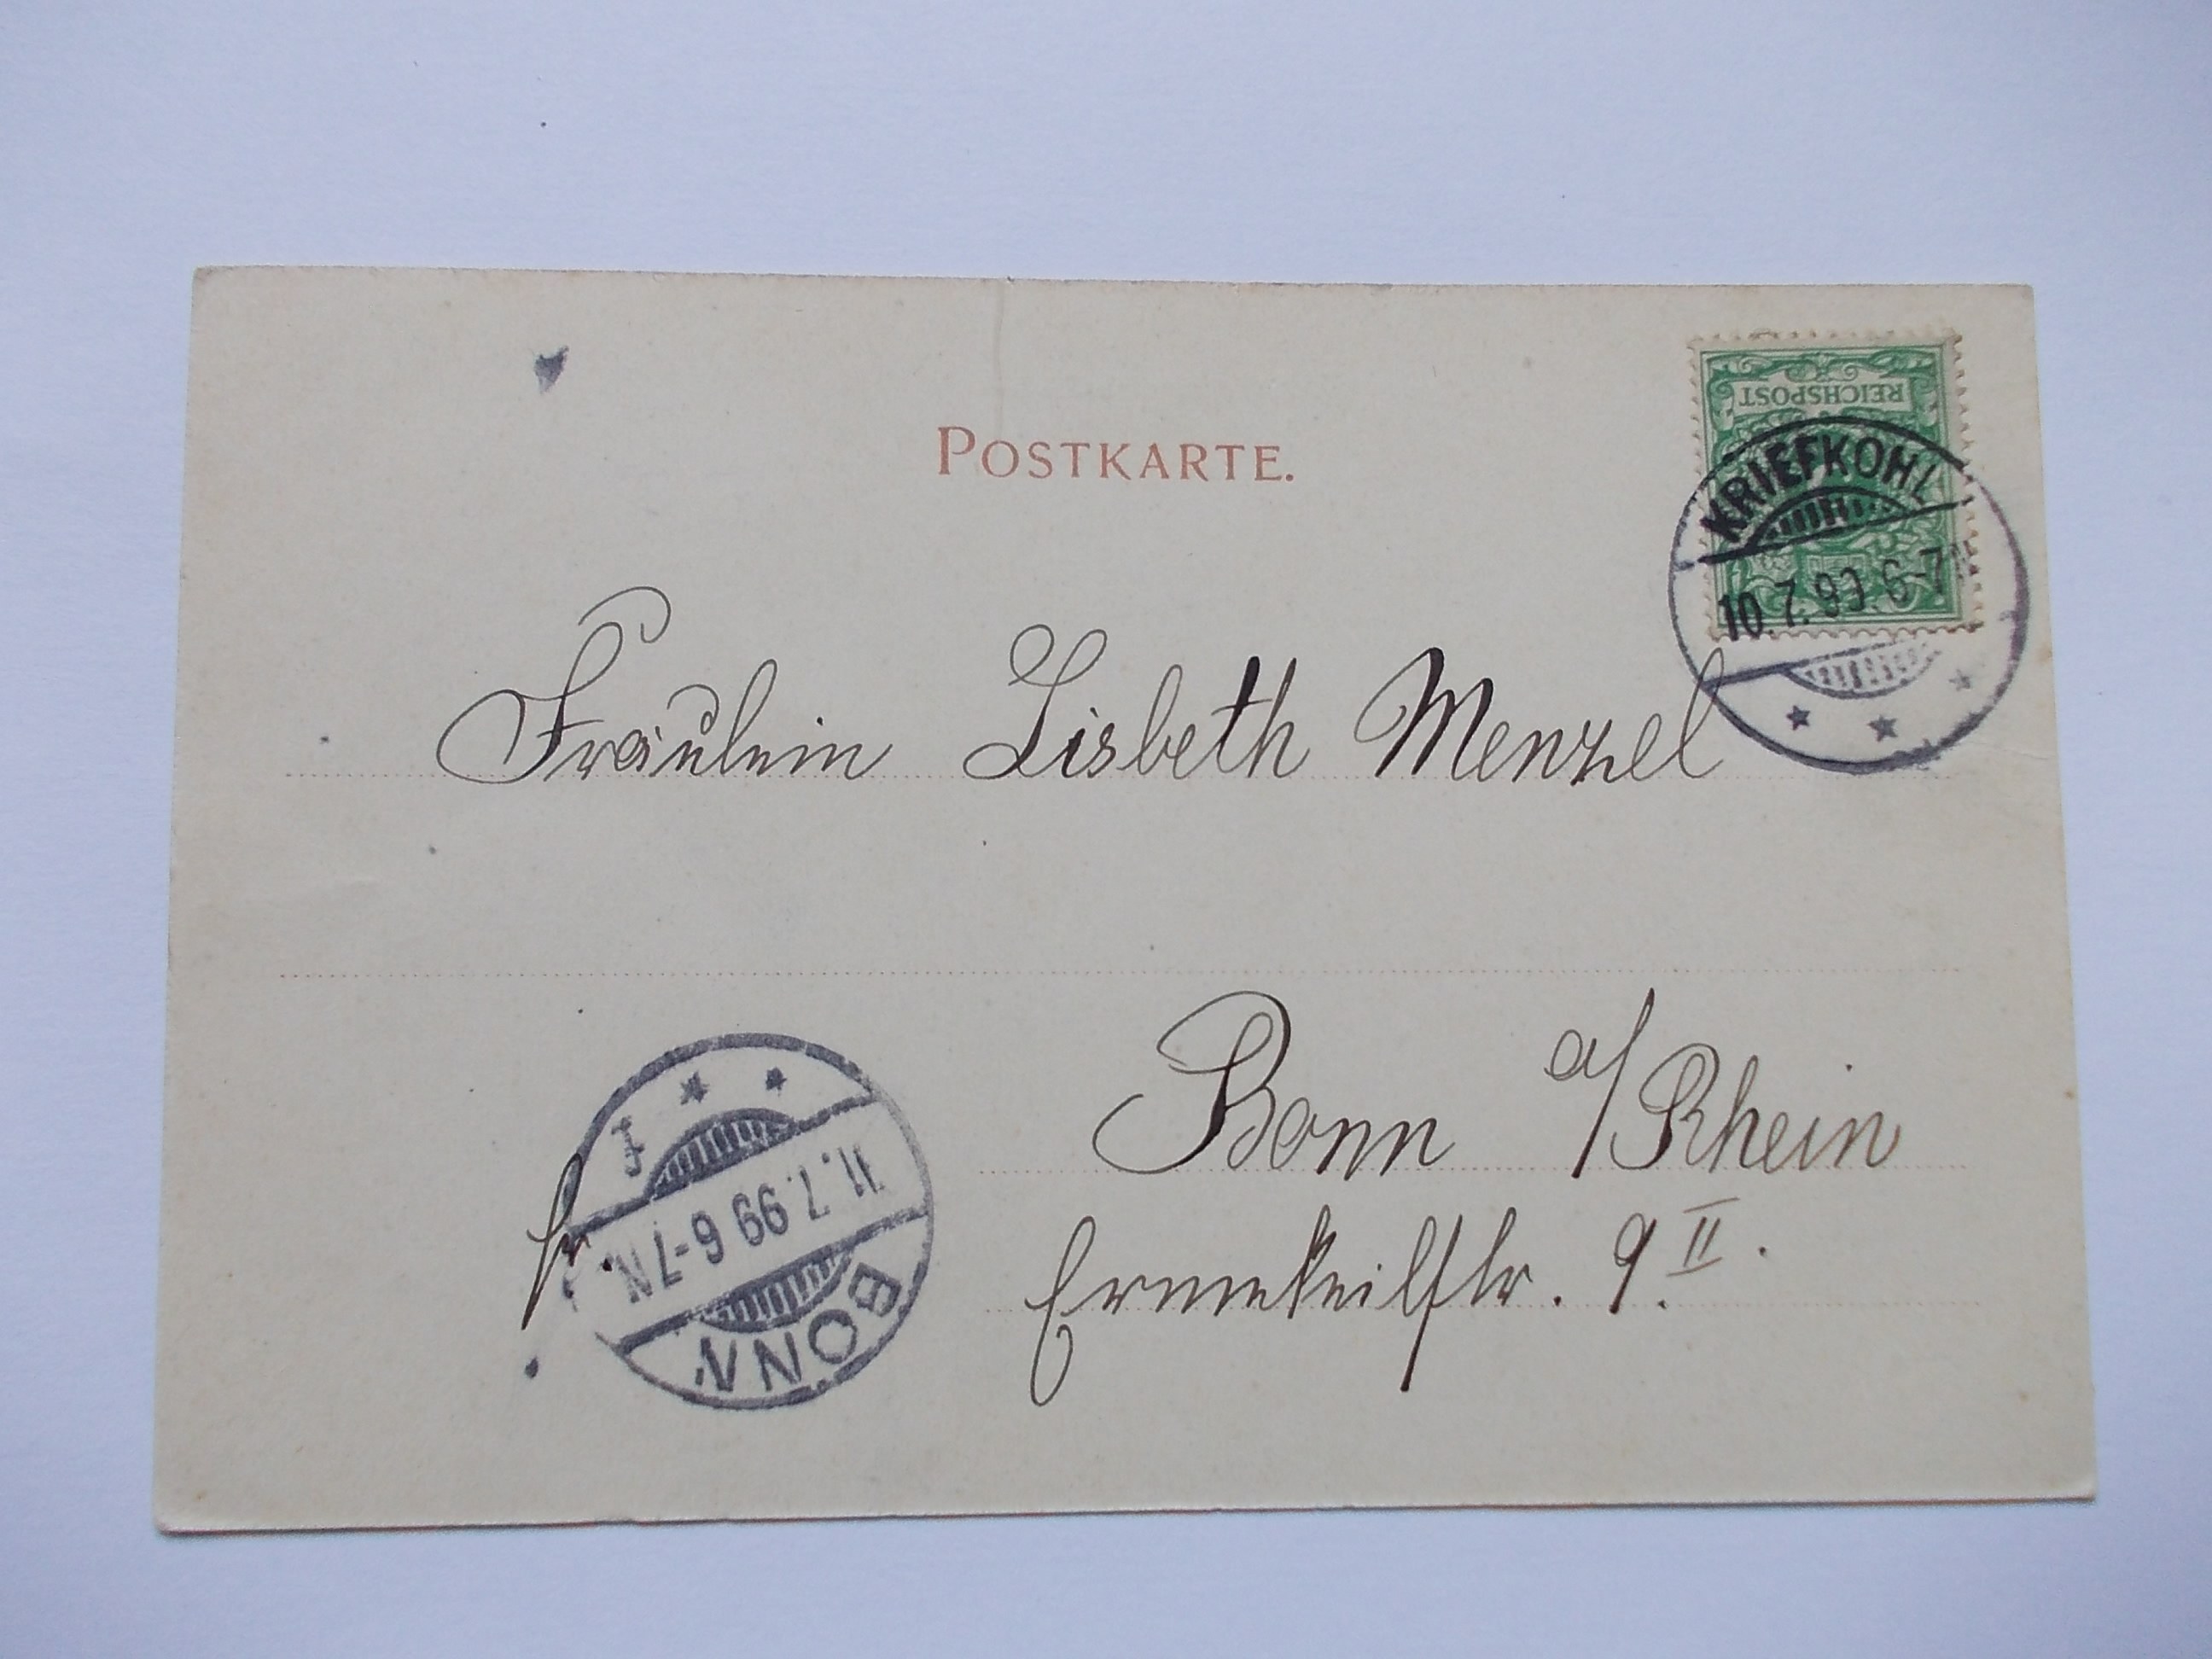 REICHSPOST
POSTKARTE.
KRIEFKOHL
10.7.99.6-7
Fräulein Lisbeth Menzel
Bonn a/Rhein
fr.
Ermekeilstr. 9.II.
11.7.99 6-7N.
BONN